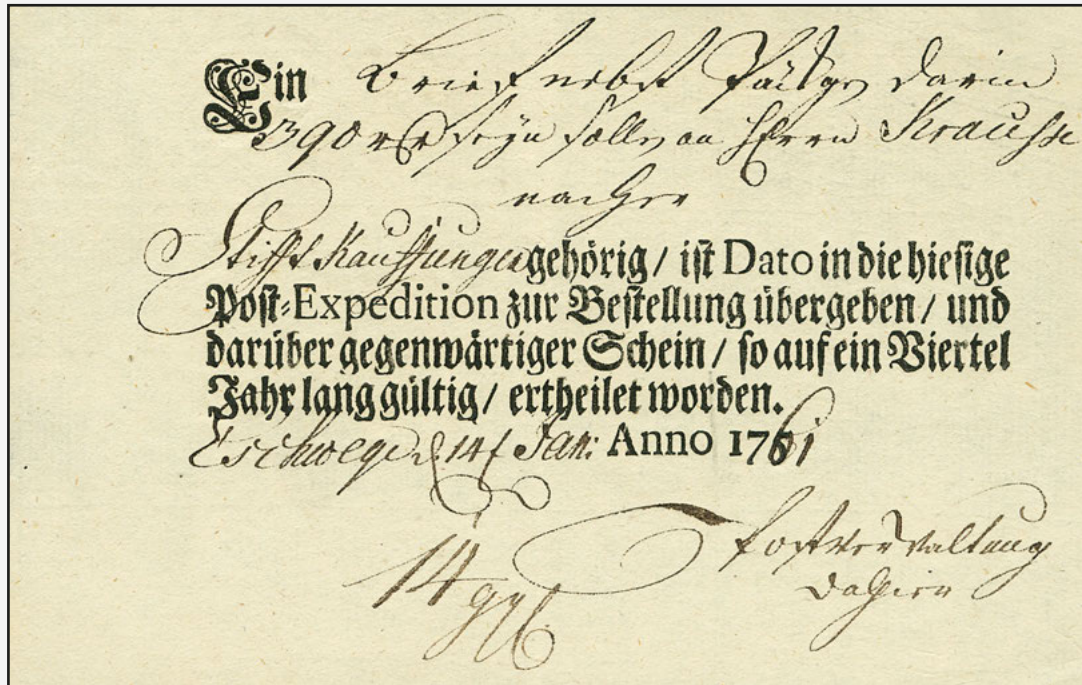 Ein Brief nebst Päckgen darin
390 rtlr seyn sollen an Herrn Krausse
nacher
Stifft Kauffungen gehörig / ist Dato in die hiesige
Post-Expedition zur Bestellung übergeben / und
darüber gegenwärtiger Schein / so auf ein Viertel
Jahr lang gültig / ertheilet worden.
Eschwege d. 14t Jan: Anno 1761
Postverwaltung
14 ggl
dahier